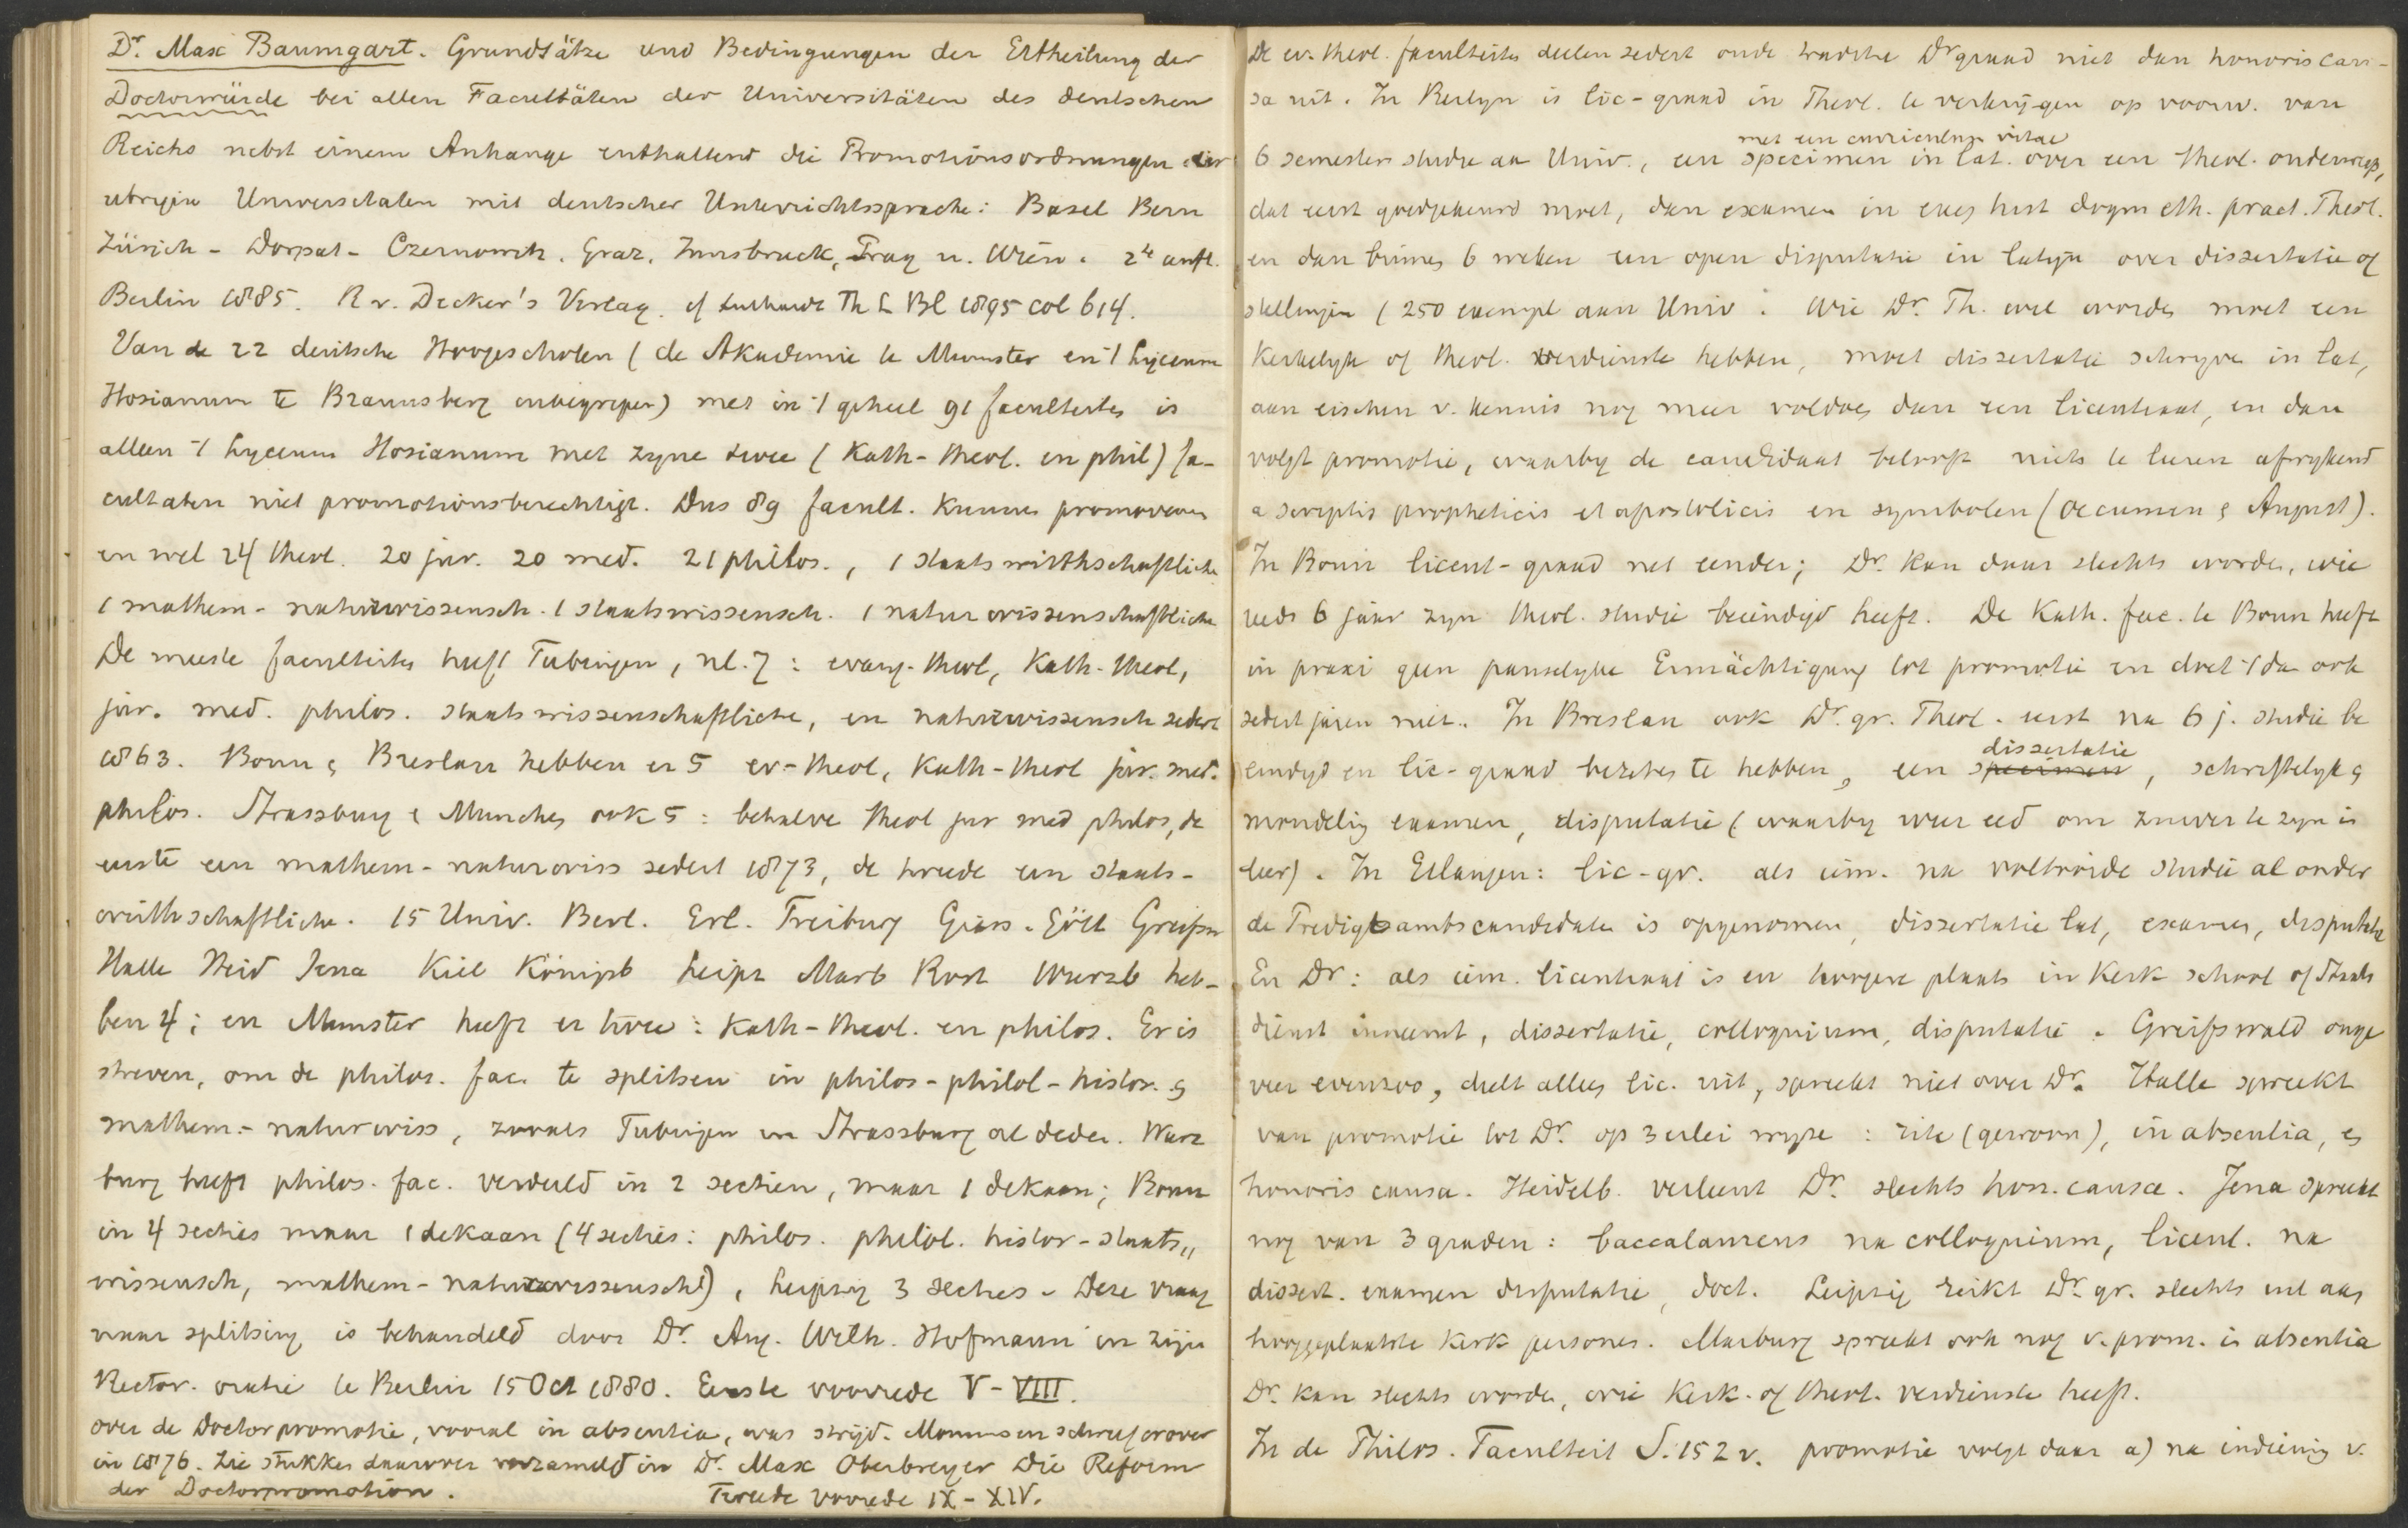 Dr. Max Baumgart. Grundsätze und Bedingungen der Ertheilung der
Doctorwürde bei allen Facultäten der Universitäten des deutschen
Reichs nebst einem Anhange enthaltend die Promotionsordnungen der
ubrigen Universitaten mit deutscher Unterrichtssprache: Basel Bern
Zürich - Dorpat - Czernowitz. Graz, Innsbruck, Prag u. Wien. 2te aufl.
Berlin 1885. R v. Decker's Verlag. cf Luthards Th L Bl 1895 col 614.
Van de 22 deutsche Hoogescholen (de Akademie te Munster en 't Lyceum
Hosianum te Braunsberg inbegrepen) met in 't geheel 91 faculteiten is
alleen 't Lyceum Hosianum met zyne twee (Kath-theol. en phil) fa-
cultaten niet promotionsberechtigt. Dus 89 facult. kunnen promoveren
en wel 24 theol. 20 jur. 20 med. 21 philos., 1 staatswirthschaftliche
1 mathem - naturwissensch. 1 staatswissensch. 1 naturwissenschaftliche
De meeste faculteiten heeft Tubingen, nl. 7: evang-theol, Kath-theol,
jur. med. philos. staatswissenschaftliche, en naturwissensch sedert
1863. Bonn & Breslau hebben er 5 ev-theol, Kath-theol jur. med.
philos. Strassburg & Munchen ook 5: behalve theol jur med philos, de
eerste een mathem - naturwiss sedert 1873, de tweede een staats-
wirthschaftliche. 15 Univ. Berl. Erl. Freiburg Giess. Gött Greifsw
Halle Heid Jena Kiel Königsb Leipz Marb Rost Wurzb heb-
ben 4; en Munster heeft er twee: Kath-theol. en philos. Er is
streven, om de philos. fac. te splitsen in philos-philol-histor. &
mathem.- naturwiss, zooals Tubingen en Strassburg al deden. Wurz
burg heeft philos. fac. verdeeld in 2 sectien, maar 1 dekaan; Bonn
in 4 secties maar 1 dekaan (4 secties: philos. philol. histor-staats„
wissensch, mathem-naturwissensch), Leipzig 3 secties. Deze vraag
naar splitsing is behandeld door Dr. Aug. Wilh. Hofmann in zijn
Rector. oratie te Berlin 15 Oct 1880. Eerste voorrede V-VIII.
over de Doctorpromotie, vooral in absentia, was strijd. Mommsen schreef erover
in 1876. Zie stukken daarover verzameld in Dr. Max Oberbreyer Die Reform
der Doctorpromotion. Tweede voorrede IX-XIV.
De ev. theol. faculteiten deelen sedert oude traditie Dr graad niet dan honoris cau-
sa uit. In Berlyn is lic-graad in Theol. te verkrijgen op voorw. van
met een curriculum vitae
6 semesters studie aan Univ., een specimen in lat. over een theol. onderwerp,
dat eerst goedgekeurd moet, dan examen in exeg hist dogm eth. pract. Theol.
en dan binnen 6 weken een open disputatie in latijn over dissertatie of
stellingen (250 exempl aan Univ. Wie Dr. Th. wil worden moet een
Kerkelyk of theol. verdienste hebben, moet dissertatie schryven in lat,
aan eischen v. kennis nog meer voldoen dan een licentiaat, en dan
volgt promotie, waarby de candidaat belooft niets te leeren afwykend
a scriptis propheticis et apostolicis en symbolen (oecumen & August).
In Bonn licent-graad net eender; Dr. kan daar slechts worden, wie
reeds 6 jaar zyn theol. studie beeindigd heeft. De Kath. fac. te Bonn heeft
in praxi geen pauselyke Ermächtigung tot promotie en doet 't dan ook
sedert jaren niet. In Breslau ook Dr. gr. Theol. eerst na 6 j. studie be
dissertatie
eindigd en lic-graad bezeten te hebben, een specimen, schriftelyk &
mondelig examen, disputatie (waarby weer eed om zuiver te zyn in
leer). In Erlangen: lic-gr. als iem. na voltooide studie al onder
de Predigtsamtscandidaten is opgenomen, dissertatie lat, examen, disputatie
En Dr: als iem. licentiaat is en hoogere plaats in Kerk school of Staats
dienst inneemt, dissertatie, colloquium, disputatie. Greifswald onge
veer evenzoo, deelt alleen lic. uit, spreekt niet over Dr. Halle spreekt
van promotie tot Dr. op 3 erlei wyze: rite (gewoon), in absentia, en
honoris causa. Heidelb. verleent Dr. slechts hon. causa. Jena spreekt
nog van 3 graden: baccalaureus na colloquium, licent. na
dissert. examen disputatie, doct. Leipzig reikt Dr. gr. slechts uit aan
hooggeplaatste Kerk personen. Marburg spreekt ook nog v. prom. in absentia
Dr. kan slechts worden, wie Kerk. of theol. verdienste heeft.
In de Philos. Faculteit S. 152 v. promotie volgt daar a) na indiening v.